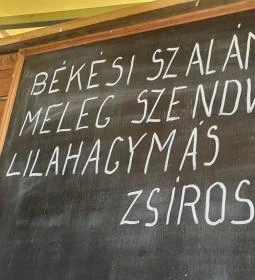 BÉKÉSI SZALÁN
MELEG SZENDV
LILAHAGYMÁS
ZSÍROS